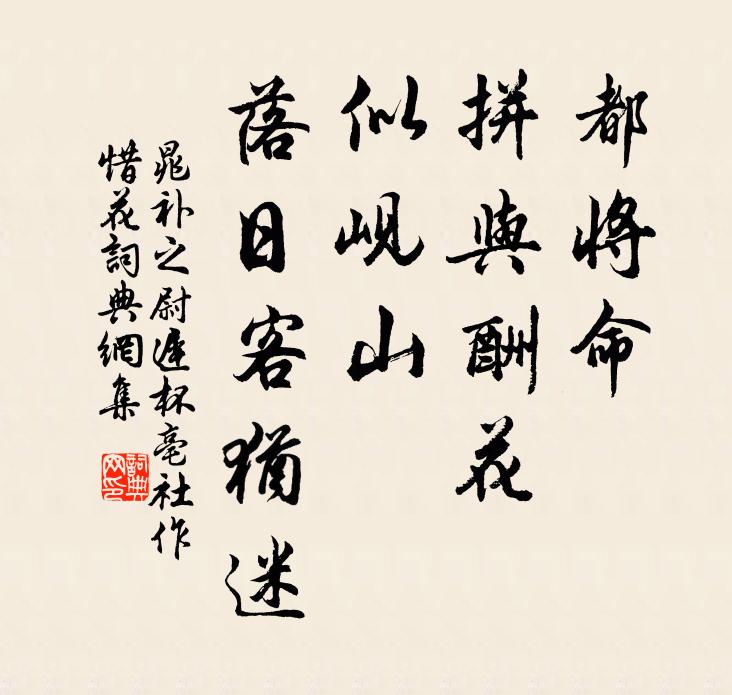 都將命
拼與酬花
似峴山
落日客猶迷
晁补之尉遲杯亳社作
惜花詞典網集
詞典網印